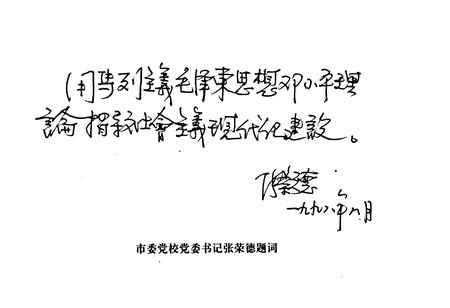 用马列主義毛泽東思想邓小平理
論指导社會主義现代化建設。
张荣德
一九九八年八月
市委党校党委书记张荣德题词